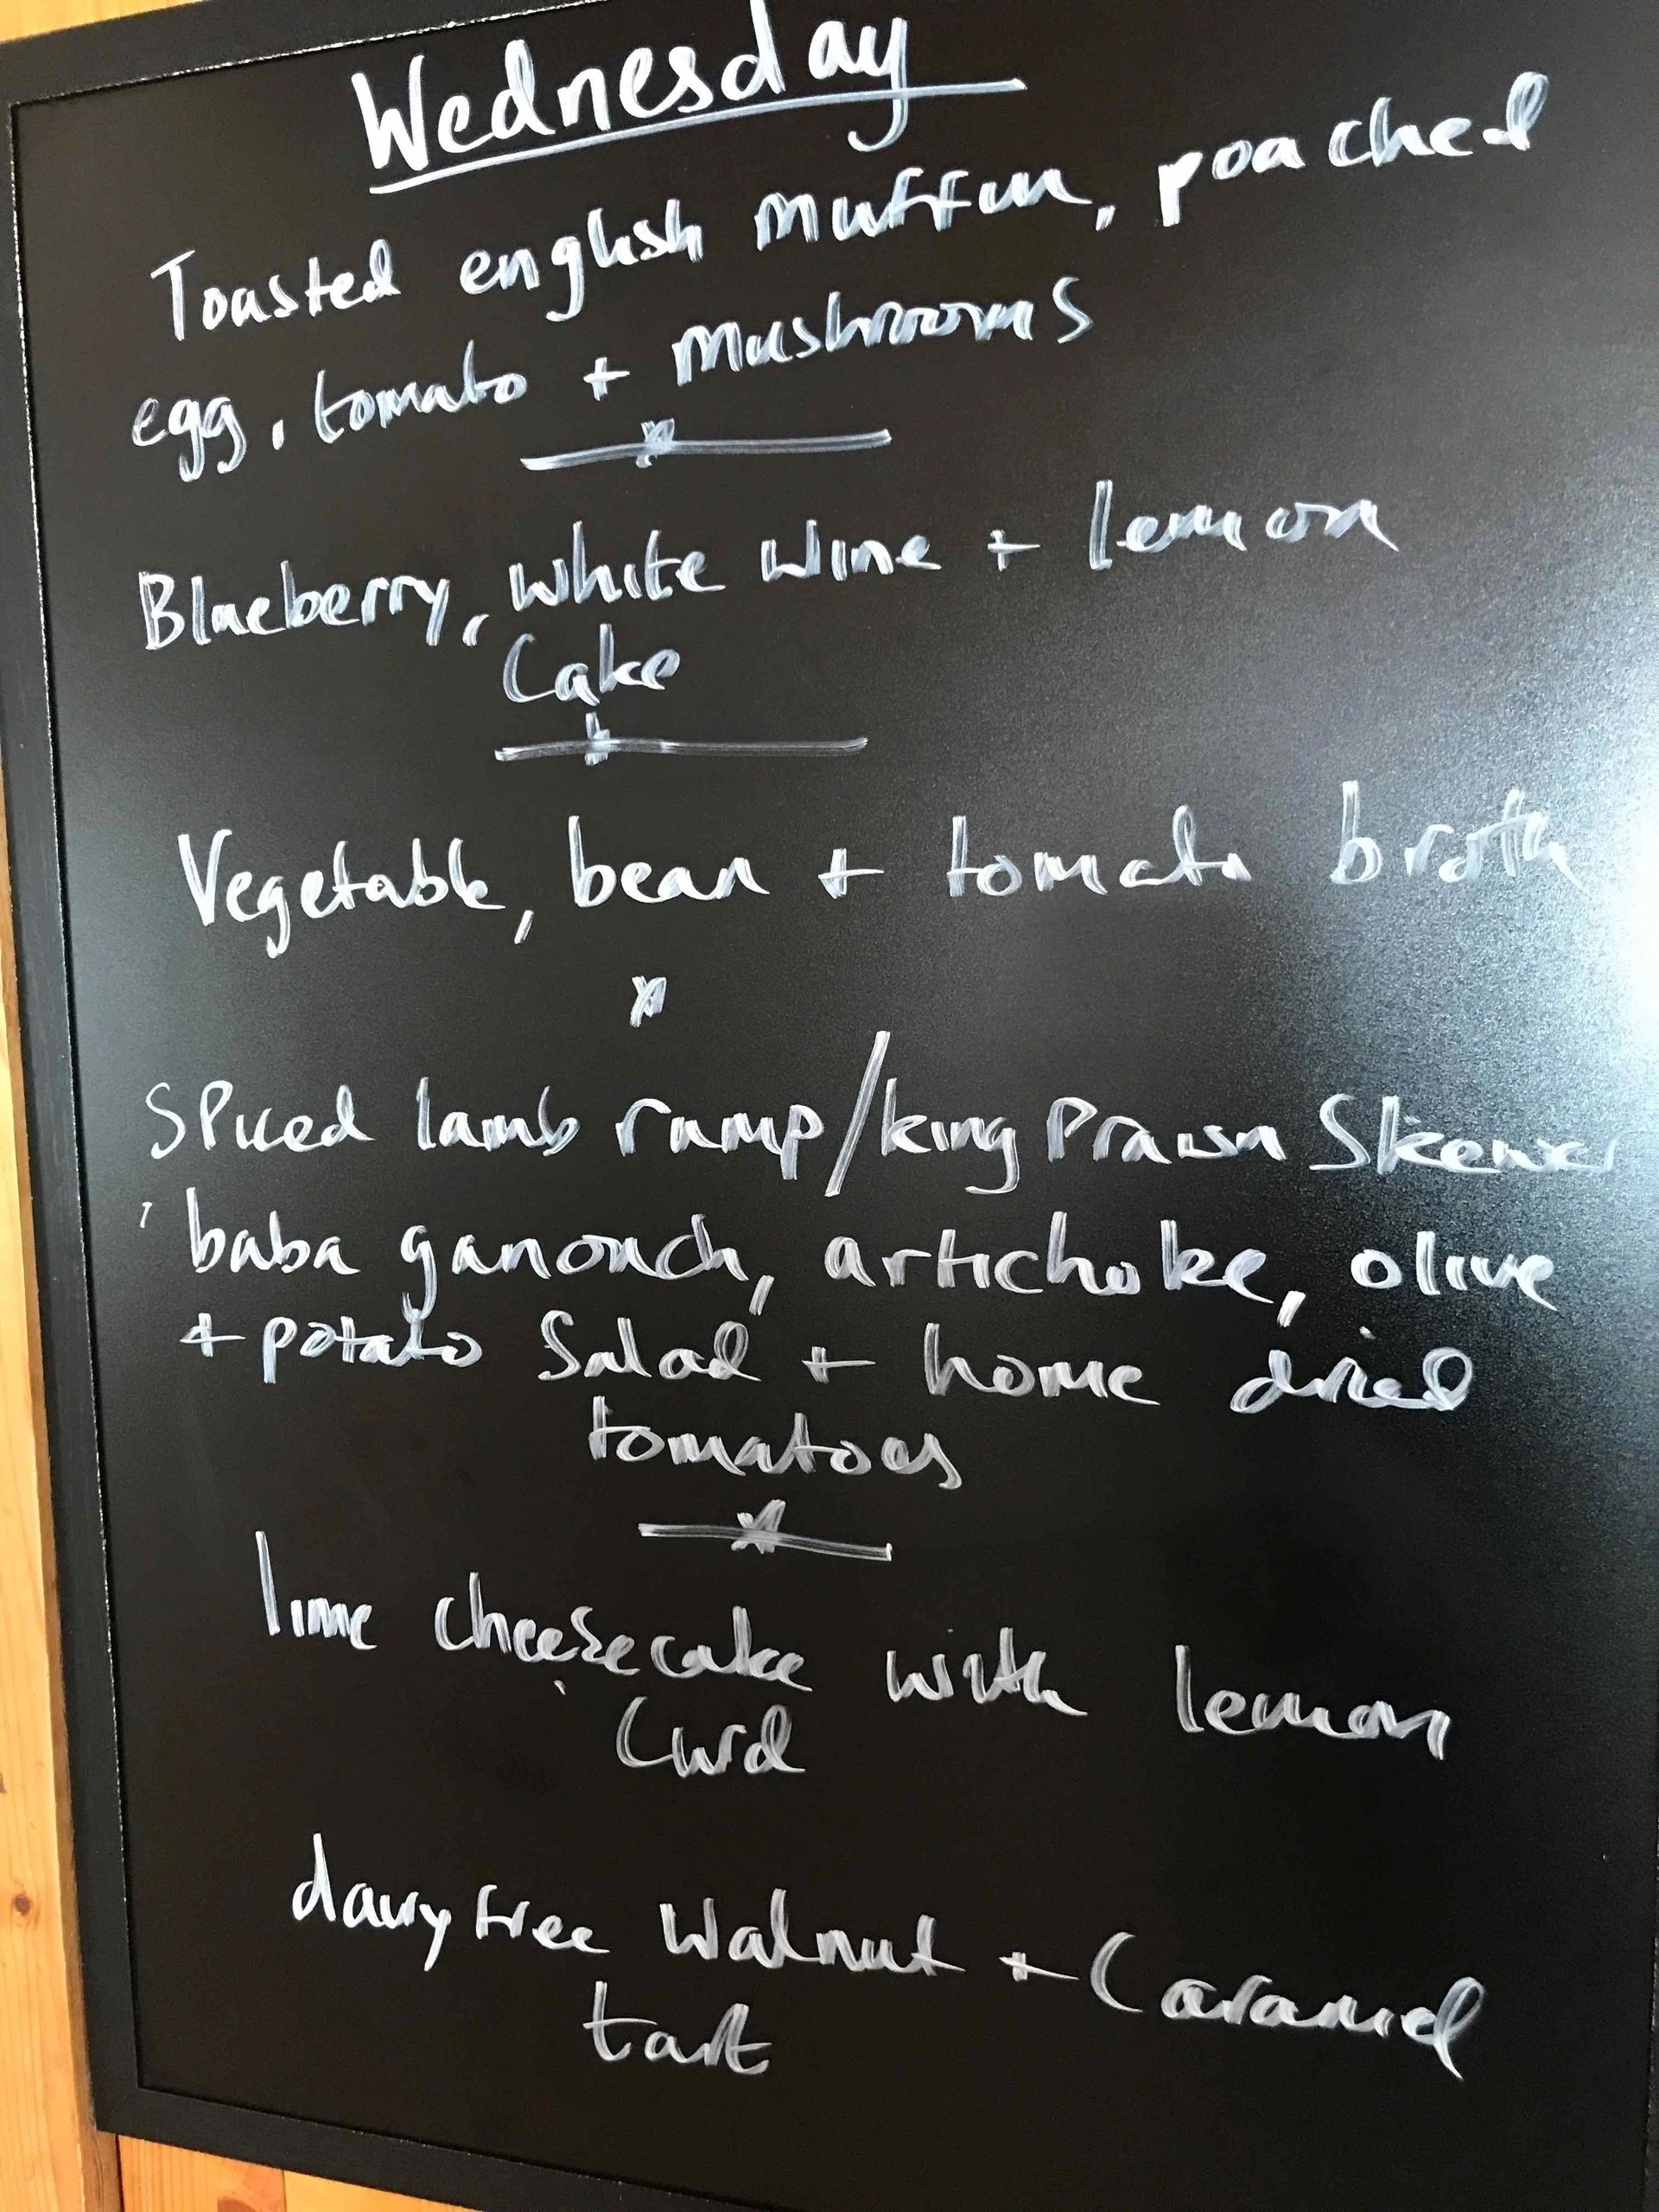 Wednesday
Toasted english muffin, poached
egg, tomato + mushrooms
Blueberry, white wine + lemon
Cake
Vegetable, bean + tomato broth
Spiced lamb rump/king Prawn Skewer
baba ganouch, artichoke, olive
+ potato Salad + home dried
tomatoes
lime cheesecake with lemon
Curd
dairy free Walnut + Caramel
tart